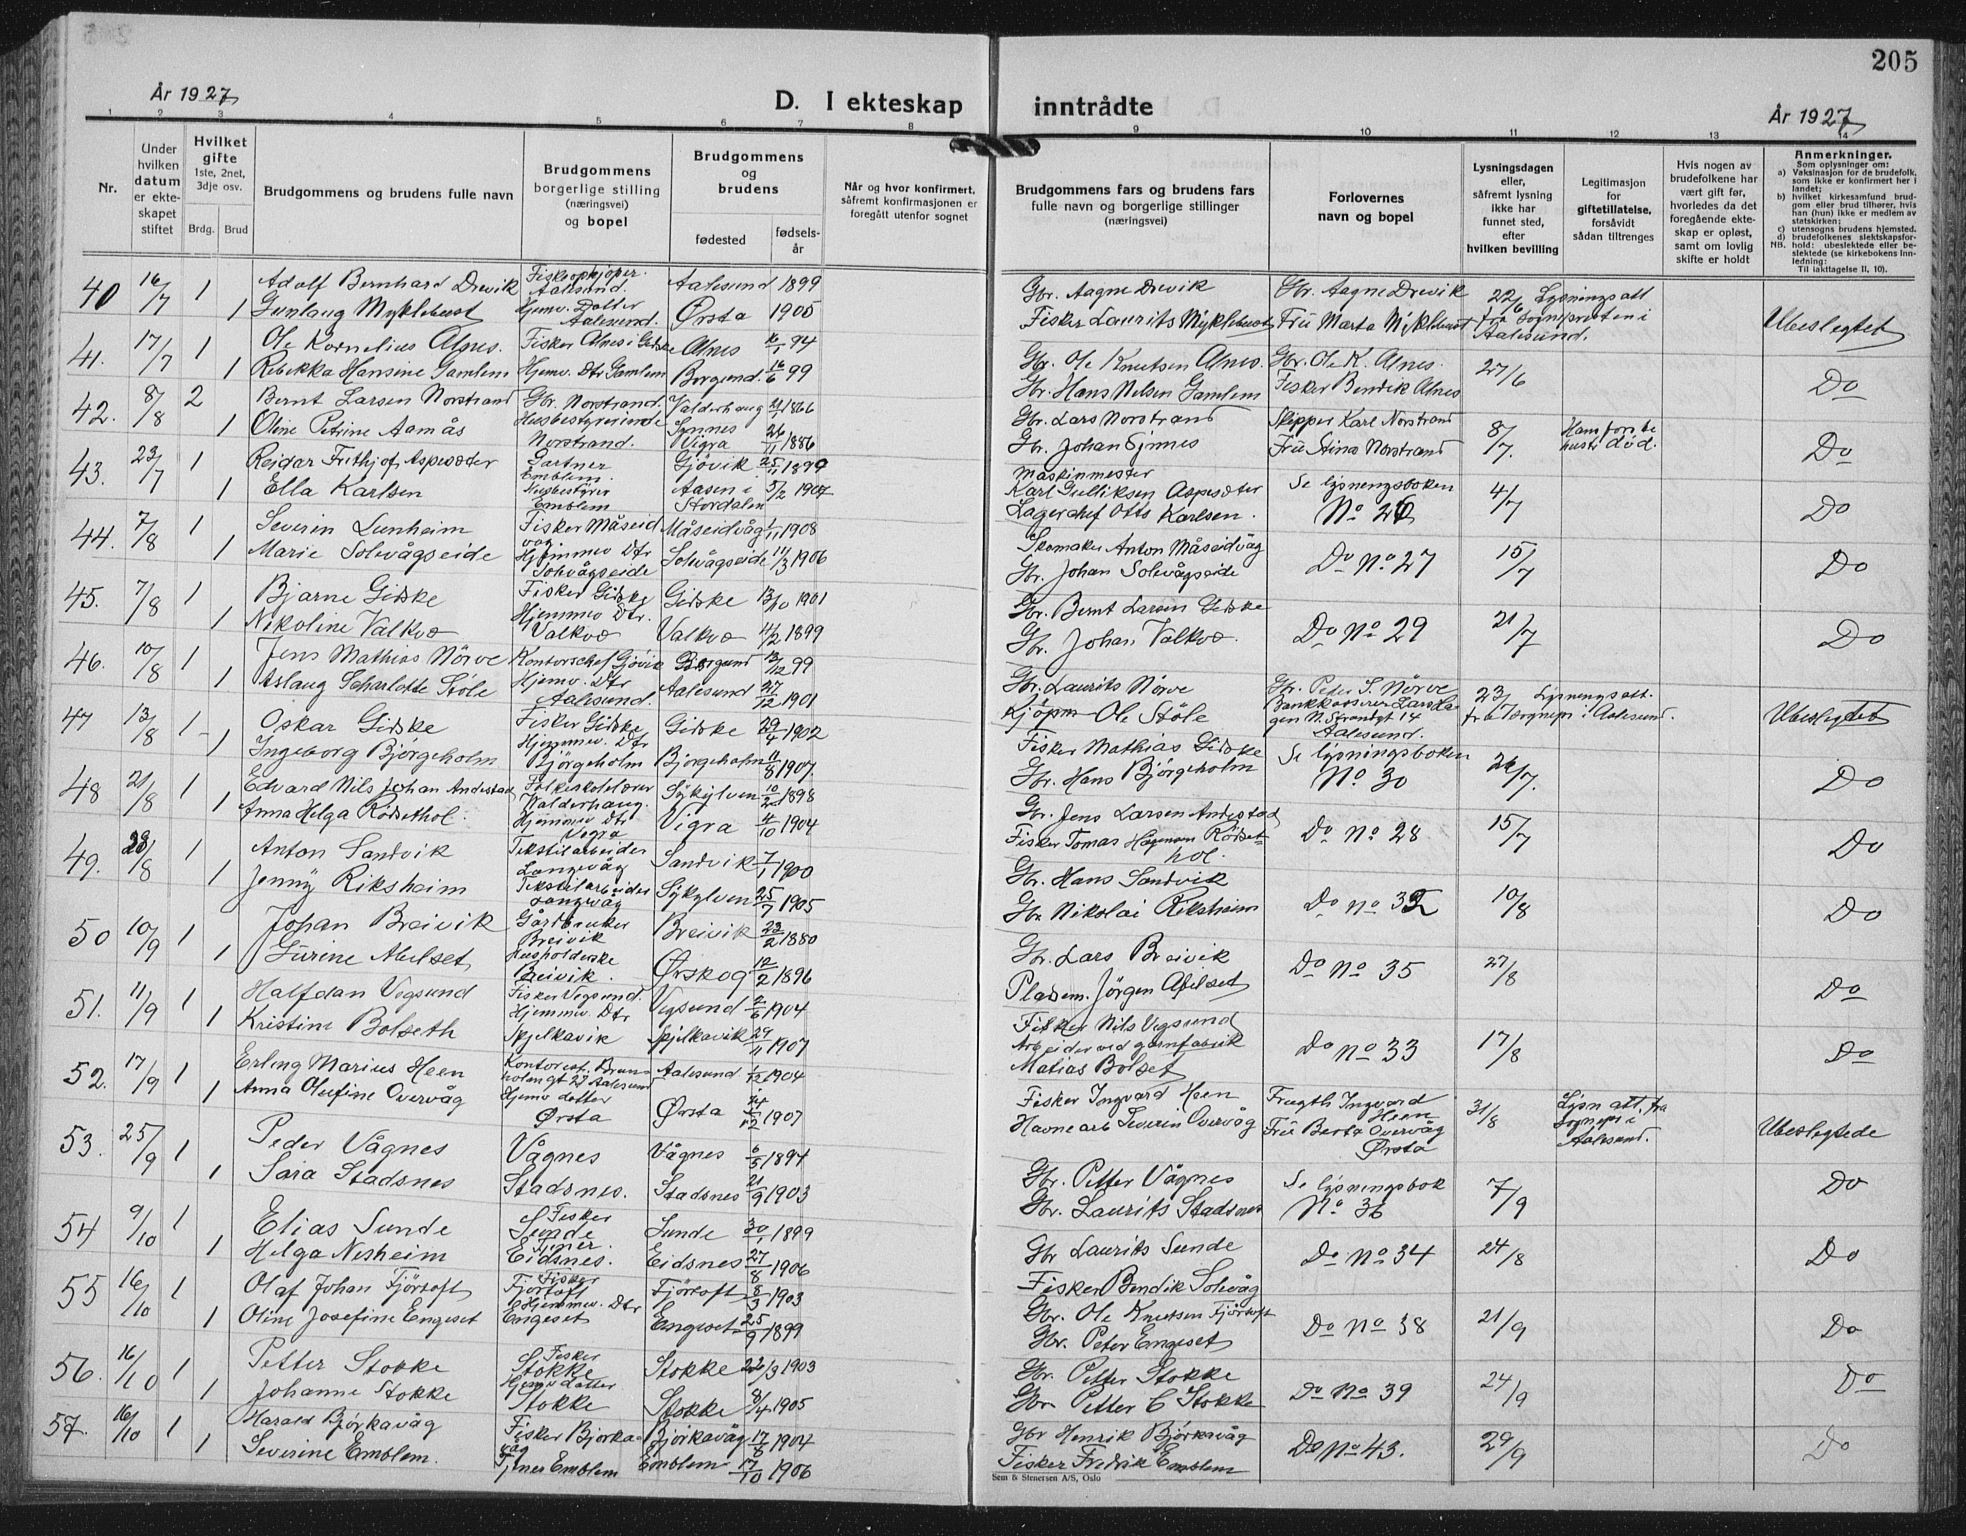 205
År 1927
D. I ekteskap inntrådte
År 1927
1 2 3 4 5 6 7 8 9 10 11 12 13 14
Nr.
Under hvilken datum er ekteskapet stiftet
Hvilket gifte
1ste, 2net, 3dje osv.
Brdg. Brud
Brudgommens og brudens fulle navn
Brudgommens borgerlige stilling (næringsvei) og bopel
Brudgommens og brudens
fødested
fødselsår
Når og hvor konfirmert, såfremt konfirmasjonen er foregått utenfor sognet
Brudgommens fars og brudens fars fulle navn og borgerlige stillinger (næringsvei)
Forlovernes navn og bopel
Lysningsdagen eller, såfremt lysning ikke har funnet sted, efter hvilken bevilling
Legitimasjon for giftetillatelse, forsåvidt sådan tiltrenges
Hvis nogen av brudefolkene har vært gift før, hvorledes da det foregående ekteskap er opløst, samt om lovlig skifte er holdt
Anmerkninger.
Som oplysninger om:
a) Vaksinasjon for de brudefolk, som ikke er konfirmert her i landet;
b) hvilket kirkesamfund brudgom eller brud tilhører, hvis han (hun) ikke er medlem av statskirken;
c) utensogns brudens hjemsted.
d) brudefolkenes slektskapsforhold: ubeslektede eller beslektede (se kirkebokens innledning:
NB.
Til iakttagelse II, 10).
40 16/7 1 Adolf Bernhard Drevik Fiskeopkjøper. Aalesund. Aalesund 1899 Gbr. Aagne Drevik Gbr. Aagne Drevik 22/6 Lysningsatt fra Sognepresten i Aalesund. Ubeslegtet
1 Gunlaug Myklebust Hjemv. Datter Aalesund. Ørsta 1905 Fisker Laurits Myklebust Fru Marta Myklebust
41. 17/7 1 Ole Kornelius Alnes. Fisker Alnes i Giske Alnes 94 Gbr. Ole Knutsen Alnes. Gbr. Ole K. Alnes. 27/6 Do
1 Rebekka Hansine Gamlem Hjemv. Dtr Gamlem Borgund 16/6 99 Gbr. Hans Nilsen Gamlem Fisker Bendik Alnes
42. 8/8 2 Bernt Larsen Norstrand Gbr. Norstrand. Valderhaug 1866 Gbr. Lars Norstrand Skipper Karl Norstrand 8/7. Do
1 Oline Petrine Aamås Husbestyrerinde Norstrand. Synnes Vigra 26/11 1886 Gbr. Johan Synnes Fru Stina Norstrand
43. 23/7 1 Reidar Frithjof Aspesæter Gartner Emblem. Gjövik 25/11 1899 Maskinmester Karl Gulliksen Aspesæter Se lysningsboken No 26 4/7 Do
1 Ella Karlsen Emblem Aasen i Stordalen 5/2 1907 Lagerchef Otto Karlsen.
44. 7/8 1 Severin Lunheim Fisker Måseidvåg Måseidvåg 1/11 1908 Skomaker Anton Måseidvåg Do No 27 15/7 Do
1 Marie Solevågseide Hjemmev Dtr Solevågseide Solevågseide 11/3 1906 Gbr. Johan Solevågseide
45. 7/8 1 Bjarne Giske Fisker Giske Giske 13/10 1901 Gbr. Bernt Larsen Giske Do No 29 21/7 Do
1 Nikoline Valkvæ Hjemmev Dtr. Valkvæ Valkvæ 4/2 1899 Gbr. Johan Valkvæ.
46. 10/8 1 Jens Mathias Nörve Kontorschef Gjövik Borgund 13/12 99 Gbr. Laurits Nörve Gbr. Peter S. Nörve 23/7 Lysningsatt. fra Sognepr. i Aalesund. Ubeslegtet
1 Aslaug Scharlotte Störe Hjemv. Dtr Aalesund. Aalesund 27/12 1901 Kjöpm Ole Stöle Strandgt 14 Aalesund.
47 13/8 1 Oskar Giske Fisker Giske Giske 29/4 1902 Fisker Mathias Giske Se lysningsboken No 30 26/7. Do
1 Ingeborg Bjørgeholm Hjemmev. Dtr Bjørgeholm Bjørgeholm 11/8 1907. Gbr. Hans Bjørgeholm
48 21/8 1 Edvard Nils Johan Andestad Folkeskolelærer Valderhaug. Sykylven 10/2 1898 Gbr. Jens Larsen Andestad Do No 28 15/7 Do
1 Anna Helga Rödsethol. Hjemmev Dtr Vigra Vigra 4/10 1904 Fisker Tomas Rödsethol.
49. 28/8 1 Anton Sandvik Tekstilarbeider Langevåg Sandvik 7/1 1900 Gbr. Hans Sandvik Do No 32 10/8 Do
1 Jenny Riksheim Tekstilarbeider Langevåg Sykylven 25/7 1905 Gbr Nikolai Riksheim
50 10/9 1 Johan Breivik Gårdbruker Breivik Breivik 23/2 1880 Gbr. Lars Breivik Do No 35 27/8 Do
1 Gurine Abelset Husholderske Breivik. Ørskog 12/2 1896 Pladsm. Jörgen Abelset
51. 11/9 1 Halfdan Vegsund Fisker Vegsund. Vegsund 2/6 1904 Fisker Nils Vegsund Do No 33 17/8 Do
1 Kristine Bolseth Hjemmev Dtr Spjelkavik Spjelkavik 29/11 1907 Arbeider ved garnfabrik Matias Bolset
52. 17/9 1 Erling Marius Heen Aalesund Aalesund 1/12 1904 Fisker Ingvard Heen Ingvard Heen 31/8 Lysn att. fra Sognepr i Aalesund. Ubeslegtede
1 Anna Olufine Overvåg Hjemv datter Ørsta Ørsta 1907 Havnearb Severin Overvåg Fru Berta Overvåg Ørsta
53. 25/9 1 Peder Vågnes Vågnes Vågnes 6/5 1894 Gbr. Petter Vågnes Se lysningsbok No 36 7/9 Do
1 Sara Stadsnes Stadsnes. Stadsnes 21/9 1903 Gbr. Laurits Stadsnes
54 9/10 1 Elias Sunde Fisker Sunde Sunde 30/1 1899 Gbr Laurits Sunde Do No 34 24/8 Do
1 Helga Nesheim Eidsnes. Eidsnes 27/8 1906 Fisker Bendik Solevåg
55 16/10 1 Olaf Johan Fjörtoft Fisker Fjörtoft Fjörtoft 8/3 1903 Gbr. Ole Knutsen Fjörtoft Do No 38 21/9 Do
1 Oline Josefine Engeset Hjemmev. Dtr Engeset Engeset 25/9 1899 Gbr. Peter Engeset
56. 16/10 1 Petter Stokke Fisker Stokke Stokke 22/3 1903 Gbr. Petter Stokke Do No 39 24/9 Do
1 Johanne Stokke Hjemv datter Stokke Stokke 8/4 1905 Gbr. Petter C Stokke
57. 16/10 1 Harald Bjørkavåg Fisker Bjørkavåg Bjørkavåg 17/8 1904 Gbr Henrik Bjørkavåg Do No 43. 29/9 Do
1 Severine Emblem. Tjener Emblem Emblem 17/10 1906 Fisker Fredrik Emblem
Sem & Stenersen A/S, Oslo